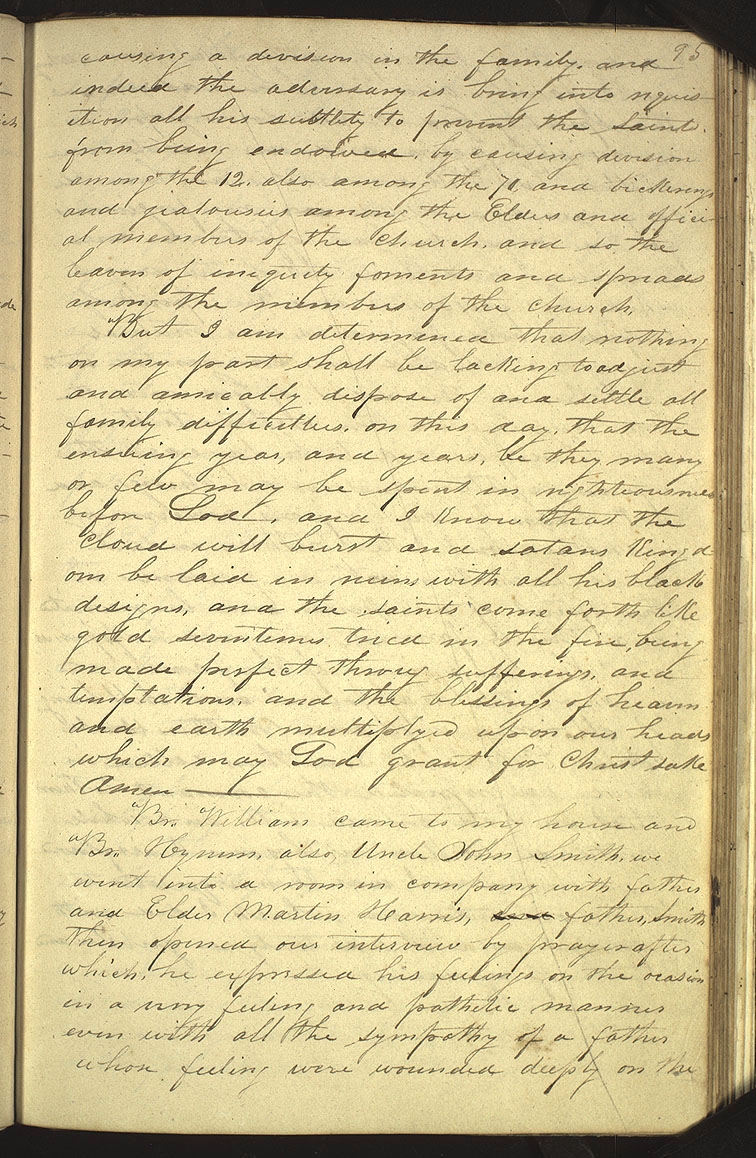 95
causing a division in the family, and
indeed the adversary is bring into requis-
ition all his subtlety to prevent the Saints
from being endowed, by causing division
among the 12, also among the 70, and bickerings
and jealousies among the Elders and offici-
al members of the church, and so the
leaven of iniquity foments and spreads
among the members of the church,
But I am determined that nothing
on my part shall be lacking to adjust
and amicably dispose of and settle all
family difficulties, on this day, that the
ensuing year, and years, be they many
or few may be spent in righteousness
before God, and I know that the
cloud will burst and satans kingd-
om be laid in ruins with all his black
designs, and the saints come forth like
gold seven times tried in the fire, being
made perfect throug sufferings, and
temptations, and the blessings of heaven
and earth multiplyed upon our heads
which may God grant for Christ sake
Amen —
Br. William came to my house and
Br. Hyrum, also, Uncle John Smith, we
went into a room in company with father
and Elder Martin Harris, and father, Smith
then opened our interview by prayer after
which, he expressed his feelings on the ocasion
in a very feeling and pathetic manner
even with all the sympathy of a father
whose feeling were wounded deeply on the